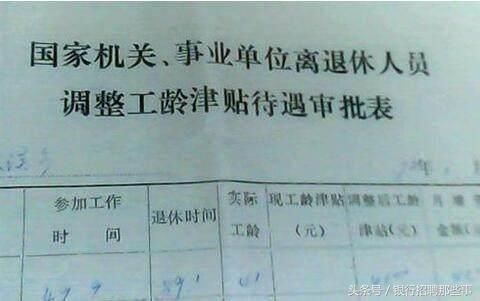 国家机关、事业单位离退休人员
调整工龄津贴待遇审批表
年
参加工作
时 间
退休时间
实际
工龄
现工龄津贴
(元)
调整后工龄
津贴(元)
月增
金额(元)
头条号/银行招聘那些事